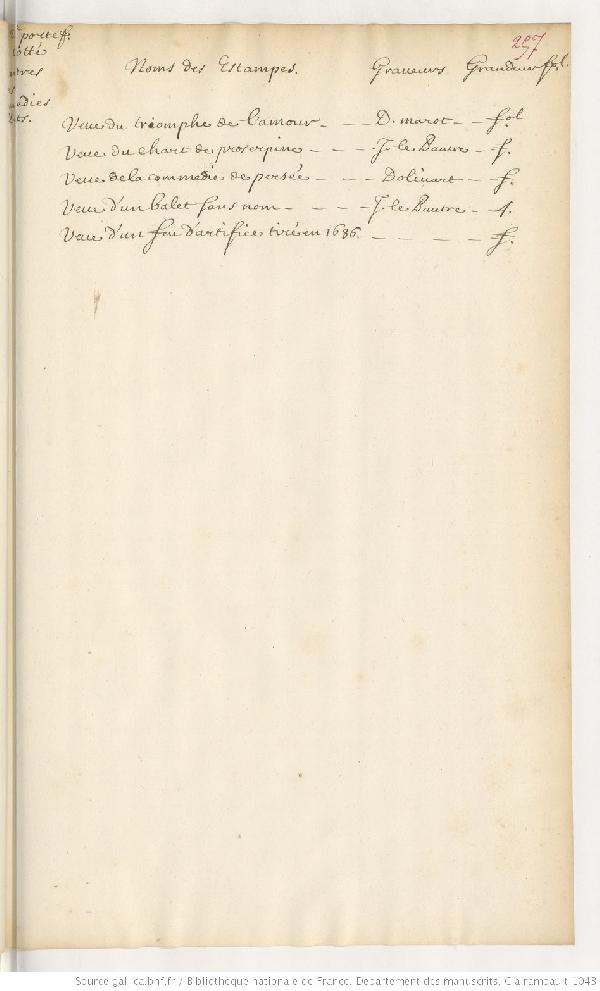 portef.
cotté
297
Noms des Estampes. Graveurs Grandeur fol.
Veue du triomphe de l'amour - - - D. marot - - fol
Veue du chart de proserpine - - - - J. le Pautre - f.
Veue de la commedie de persée - - - Dolivart - - f.
Veue d'un balet sans nom - - - - J. le Pautre - f.
Veue d'un feu d'artifice tiré en 1686. - - - - - f.
Source gallica.bnf.fr / Bibliothèque nationale de France. Département des manuscrits. Clairambault 1043